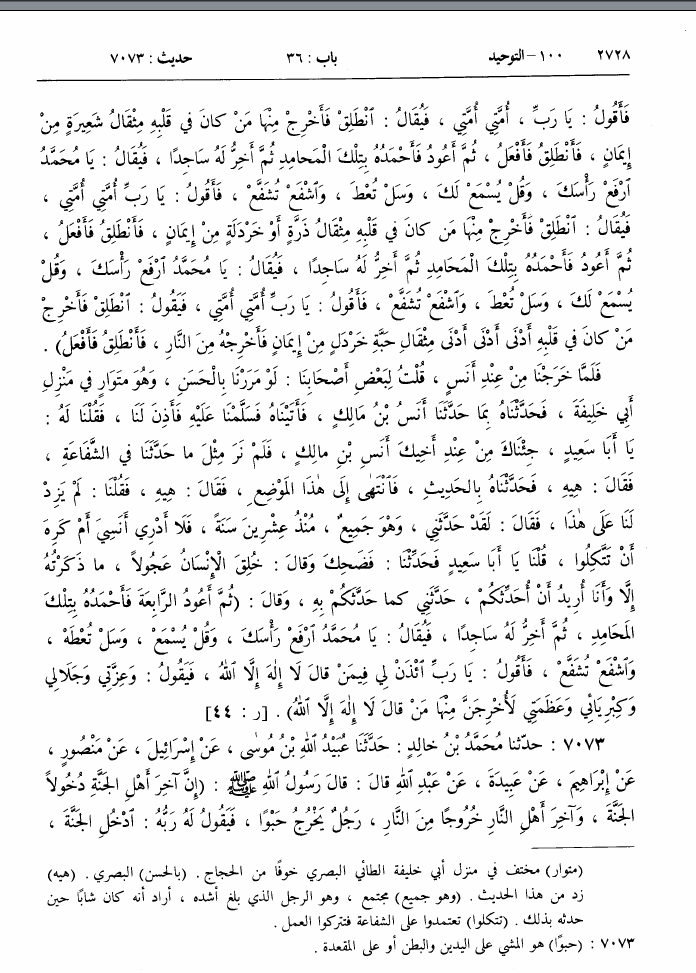 ٢٧٢٨ ١٠٠ - التوحيد باب : ٣٦ حديث : ٧٠٧٣
فَأَقُولُ : يَا رَبِّ ، أُمَّتِي أُمَّتِي ، فَيُقَالُ : ٱنْطَلِقْ فَأَخْرِجْ مِنْهَا مَنْ كانَ في قَلْبِهِ مِثْقَالُ شَعِيرَةٍ مِنْ
إِيمَانٍ ، فَأَنْطَلِقُ فَأَفْعَلُ ، ثُمَّ أَعُودُ فَأَحْمَدُهُ بِتِلْكَ الْمَحامِدِ ثُمَّ أَخِرُّ لَهُ سَاجِدًا ، فَيُقَالُ : يَا مُحَمَّدُ
ٱرْفَعْ رَأْسَكَ ، وَقُلْ يُسْمَعْ لَكَ ، وَسَلْ تُعْطَ ، وَٱشْفَعْ تُشَفَّعْ ، فَأَقُولُ : يَا رَبِّ أُمَّتِي أُمَّتِي ،
فَيُقَالُ : ٱنْطَلِقْ فَأَخْرِجْ مِنْهَا مَن كانَ في قَلْبِهِ مِثْقَالُ ذَرَّةٍ أَوْ خَرْدَلَةٍ مِنْ إِيمَانٍ ، فَأَنْطَلِقُ فَأَفْعَلُ ،
ثُمَّ أَعُودُ فَأَحْمَدُهُ بِتِلْكَ الْمَحامِدِ ثُمَّ أَخِرُّ لَهُ سَاجِدًا ، فَيُقَالُ : يَا مُحَمَّدُ ٱرْفَعْ رَأْسَكَ ، وَقُلْ
يُسْمَعْ لَكَ ، وَسَلْ تُعْطَ ، وَٱشْفَعْ تُشَفَّعْ ، فَأَقُولُ : يَا رَبِّ أُمَّتِي أُمَّتِي ، فَيَقُولُ : ٱنْطَلِقْ فَأَخْرِجْ
مَنْ كانَ في قَلْبِهِ أَدْنَى أَدْنَى أَدْنَى مِثْقَالِ حَبَّةِ خَرْدَلٍ مِنْ إِيمَانٍ فَأَخْرِجْهُ مِنَ النَّارِ ، فَأَنْطَلِقُ فَأَفْعَلُ) .
فَلَمَّا خَرَجْنَا مِنْ عِنْدِ أَنَسٍ ، قُلْتُ لِبَعْضِ أَصْحَابِنَا : لَوْ مَرَرْنَا بِالْحَسَنِ ، وَهُوَ مُتَوَارٍ في مَنْزِلِ
أَبِي خَلِيفَةَ ، فَحَدَّثْنَاهُ بِمَا حَدَّثَنَا أَنَسُ بْنُ مَالِكٍ ، فَأَتَيْنَاهُ فَسَلَّمْنَا عَلَيْهِ فَأَذِنَ لَنَا ، فَقُلْنَا لَهُ :
يَا أَبَا سَعِيدٍ ، جِئْنَاكَ مِنْ عِنْدِ أَخِيكَ أَنَسِ بْنِ مالِكٍ ، فَلَمْ نَرَ مِثْلَ ما حَدَّثَنَا في الشَّفَاعَةِ ،
فَقَالَ : هِيهِ ، فَحَدَّثْنَاهُ بِالحَدِيثِ ، فَٱنْتَهَى إِلَى هٰذَا المَوْضِعِ ، فَقَالَ : هِيهِ ، فَقُلْنَا : لَمْ يَزِدْ
لَنَا عَلَى هٰذَا ، فَقَالَ : لَقَدْ حَدَّثَنِي ، وَهْوَ جَمِيعٌ ، مُنْذُ عِشْرِينَ سَنَةً ، فَلَا أَدْرِي أَنَسِيَ أَمْ كَرِهَ
أَنْ تَتَّكِلُوا ، قُلْنَا يَا أَبَا سَعِيدٍ فَحَدِّثْنَا : فَضَحِكَ وَقَالَ : خُلِقَ الْإِنْسَانُ عَجُولاً ، ما ذَكَرْتُهُ
إِلَّا وَأَنَا أُرِيدُ أَنْ أُحَدِّثَكُمْ ، حَدَّثَنِي كما حَدَّثَكُمْ بِهِ ، وَقَالَ : (ثُمَّ أَعُودُ الرَّابِعَةَ فَأَحْمَدُهُ بِتِلْكَ
المَحَامِدِ ، ثُمَّ أَخِرُّ لَهُ سَاجِدًا ، فَيُقَالُ : يَا مُحَمَّدُ ٱرْفَعْ رَأْسَكَ ، وَقُلْ يُسْمَعْ ، وَسَلْ تُعْطَهْ ،
وَٱشْفَعْ تُشَفَّعْ ، فَأَقُولُ : يَا رَبِّ ٱئْذَنْ لِي فِيمَنْ قالَ لَا إِلٰهَ إِلَّا ٱللهُ ، فَيَقُولُ : وَعِزَّتِي وَجَلَالِي
وَكِبْرِيَائِي وَعَظَمَتِي لَأُخْرِجَنَّ مِنْهَا مَنْ قالَ لَا إِلٰهَ إِلَّا ٱللهُ) . [ر : ٤٤]
٧٠٧٣ : حدّثنا مُحَمَّدُ بْنُ خالِدٍ : حَدَّثَنَا عُبَيْدُ ٱللهِ بْنُ مُوسٰى ، عَنْ إِسْرَائِيلَ ، عَنْ مَنْصُورٍ ،
عَنْ إِبْرَاهِيمَ ، عَنْ عَبِيدَةَ ، عَنْ عَبْدِ ٱللهِ قالَ : قالَ رَسُولُ ٱللهِ ﷺ : (إِنَّ آخِرَ أَهْلِ الجَنَّةِ دُخُولاً
الجَنَّةَ ، وَآخِرَ أَهْلِ النَّارِ خُرُوجًا مِنَ النَّارِ ، رَجُلٌ يَخْرُجُ حَبْوًا ، فَيَقُولُ لَهُ رَبُّهُ : ٱدْخُلِ الجَنَّةَ ،
(متوار) مختف في منزل أبي خليفة الطائي البصري خوفًا من الحجاج . (بالحسن) البصري . (هيه)
زد من هذا الحديث . (وهو جميع) مجتمع ، وهو الرجل الذي بلغ أشده ، أراد أنه كان شابًا حين
حدثه بذلك . (تتكلوا) تعتمدوا على الشفاعة فتتركوا العمل .
٧٠٧٣ : (حبوًا) هو المشي على اليدين والبطن أو على المقعدة .